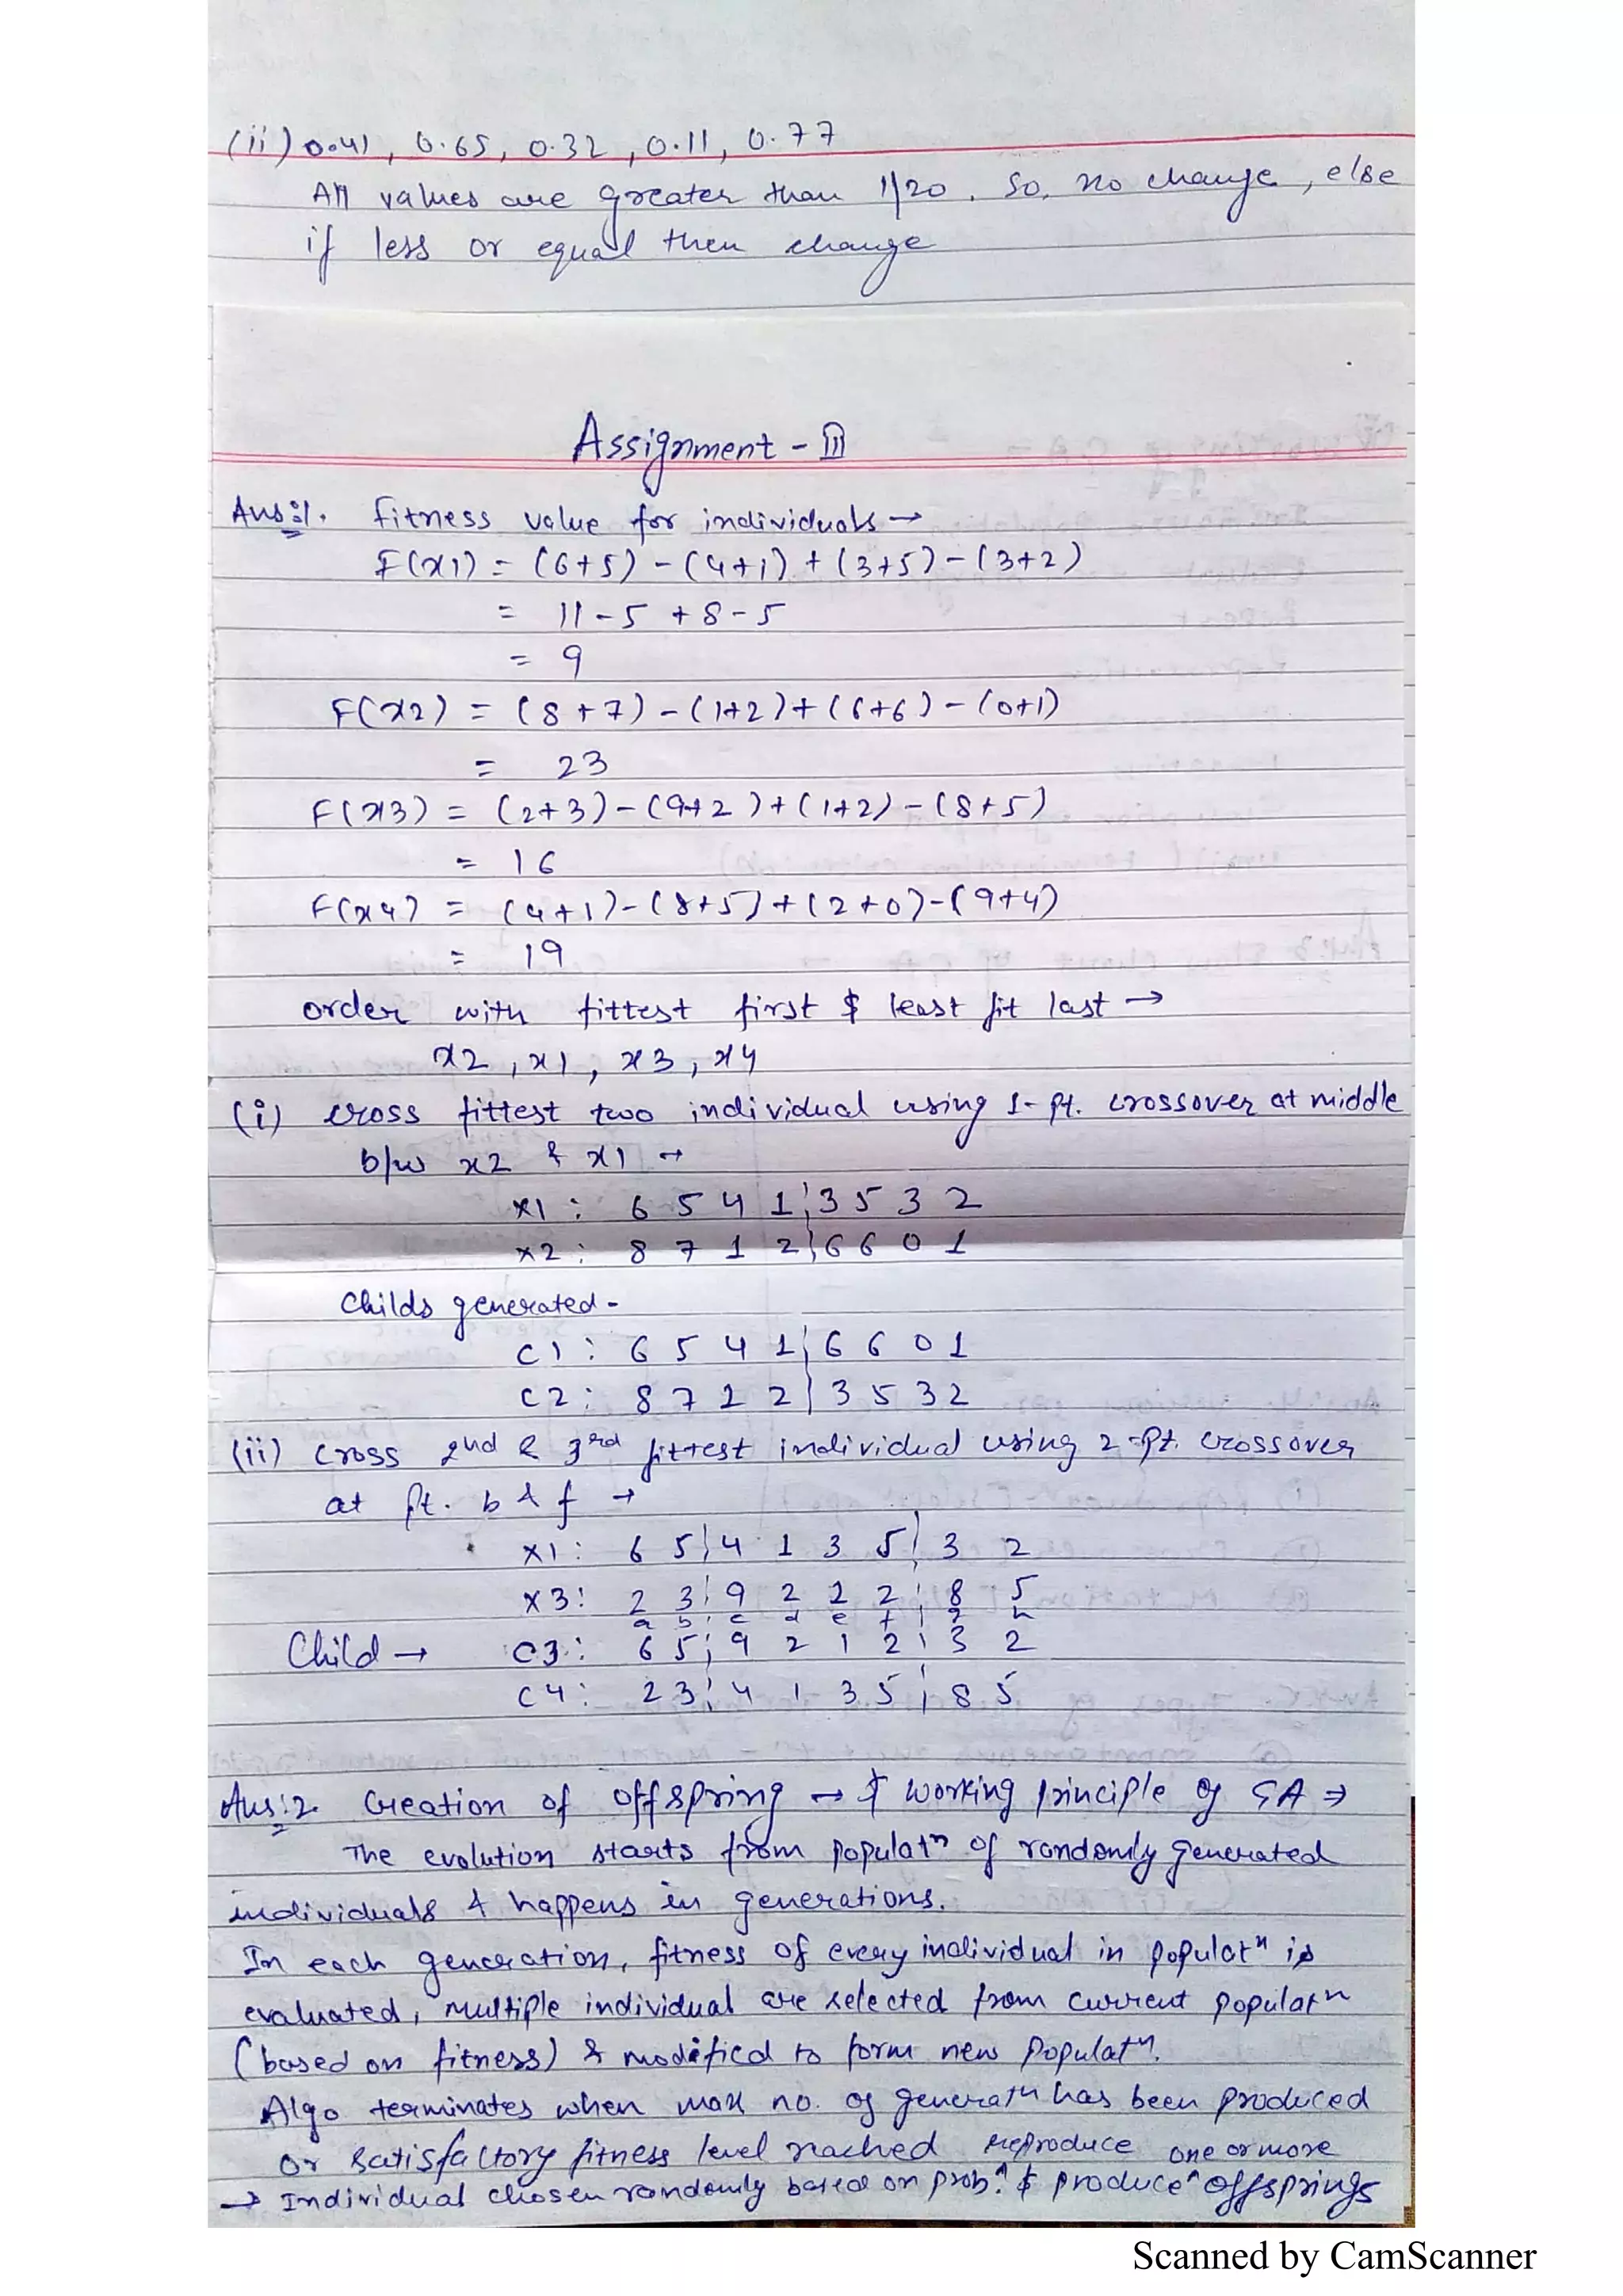 (ii) 0.41, 0.65, 0.32, 0.11, 0.77
All values are greater than 1/20. So, no change, else
if less or equal then change
Assignment - III
Ans:1. Fitness value for individuals →
F(x1) = (6+5) - (4+1) + (3+5) - (3+2)
= 11 - 5 + 8 - 5
= 9
F(x2) = (8+7) - (1+2) + (6+6) - (0+1)
= 23
F(x3) = (2+3) - (9+2) + (1+2) - (8+5)
= 16
F(x4) = (4+1) - (8+5) + (2+0) - (9+4)
= 19
order with fittest first & least fit last →
x2, x1, x3, x4
(i) cross fittest two individual using 1-pt. crossover at middle
b/w x2 & x1 →
x1: 6 5 4 1 | 3 5 3 2
x2: 8 7 1 2 | 6 6 0 1
Childs generated -
C1: 6 5 4 1 | 6 6 0 1
C2: 8 7 1 2 | 3 5 3 2
(ii) Cross 2nd & 3rd fittest individual using 2-pt. crossover
at pt. b & f →
X1: 6 5 | 4 1 3 5 | 3 2
X3: 2 3 | 9 2 1 2 | 8 5
a b c d e f g h
Child → C3: 6 5 | 9 2 1 2 | 3 2
C4: 2 3 | 4 1 3 5 | 8 5
Ans:2. Creation of offspring → & working principle of GA ⇒
The evolution starts from populatⁿ of randomly generated
individuals & happens in generations.
In each generation, fitness of every individual in populatⁿ is
evaluated, multiple individual are selected from current populatⁿ
(based on fitness) & modified to form new populatⁿ.
Algo terminates when max no. of generatⁿ has been produced
or satisfactory fitness level reached reproduce one or more
→ Individual chosen randomly based on prob. ^ & produce ^ offsprings
Scanned by CamScanner